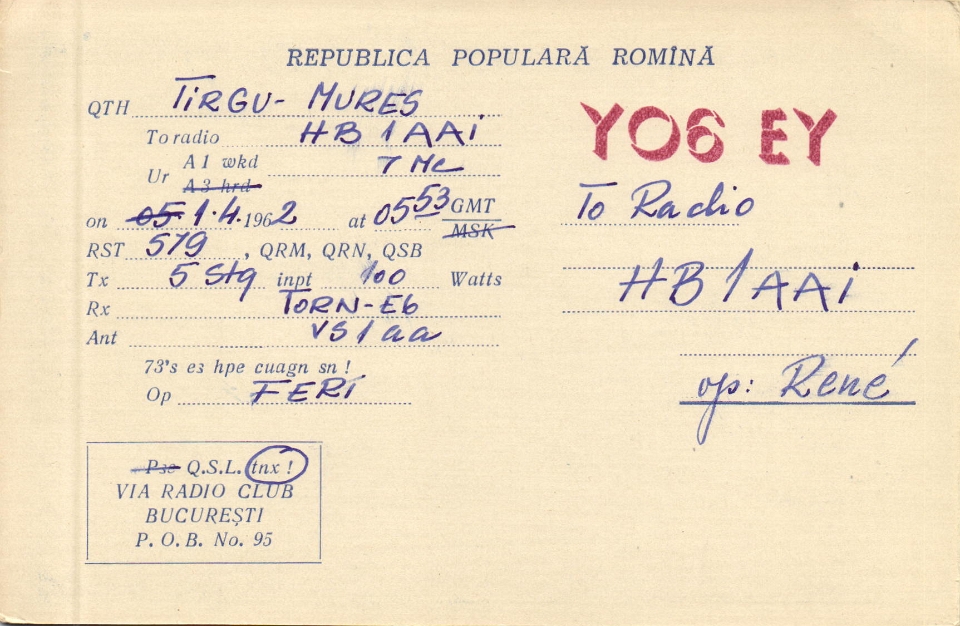 REPUBLICA POPULARĂ ROMÎNĂ
QTH TIRGU- MURES
To radio HB1AAi
Ur A1 wkd 7 Mc
A3 hrd
on 05. 1.4. 1962 at 0553 GMT
MSK
RST 579, QRM, QRN, QSB
Tx 5 Stg inpt 100 Watts
Rx TORN-Eb
Ant VS1aa
73's es hpe cuagn sn!
Op FERI
Pse Q.S.L. tnx!
VIA RADIO CLUB
BUCUREȘTI
P. O. B. No. 95
YO6 EY
To Radio
HB1AAi
op: René